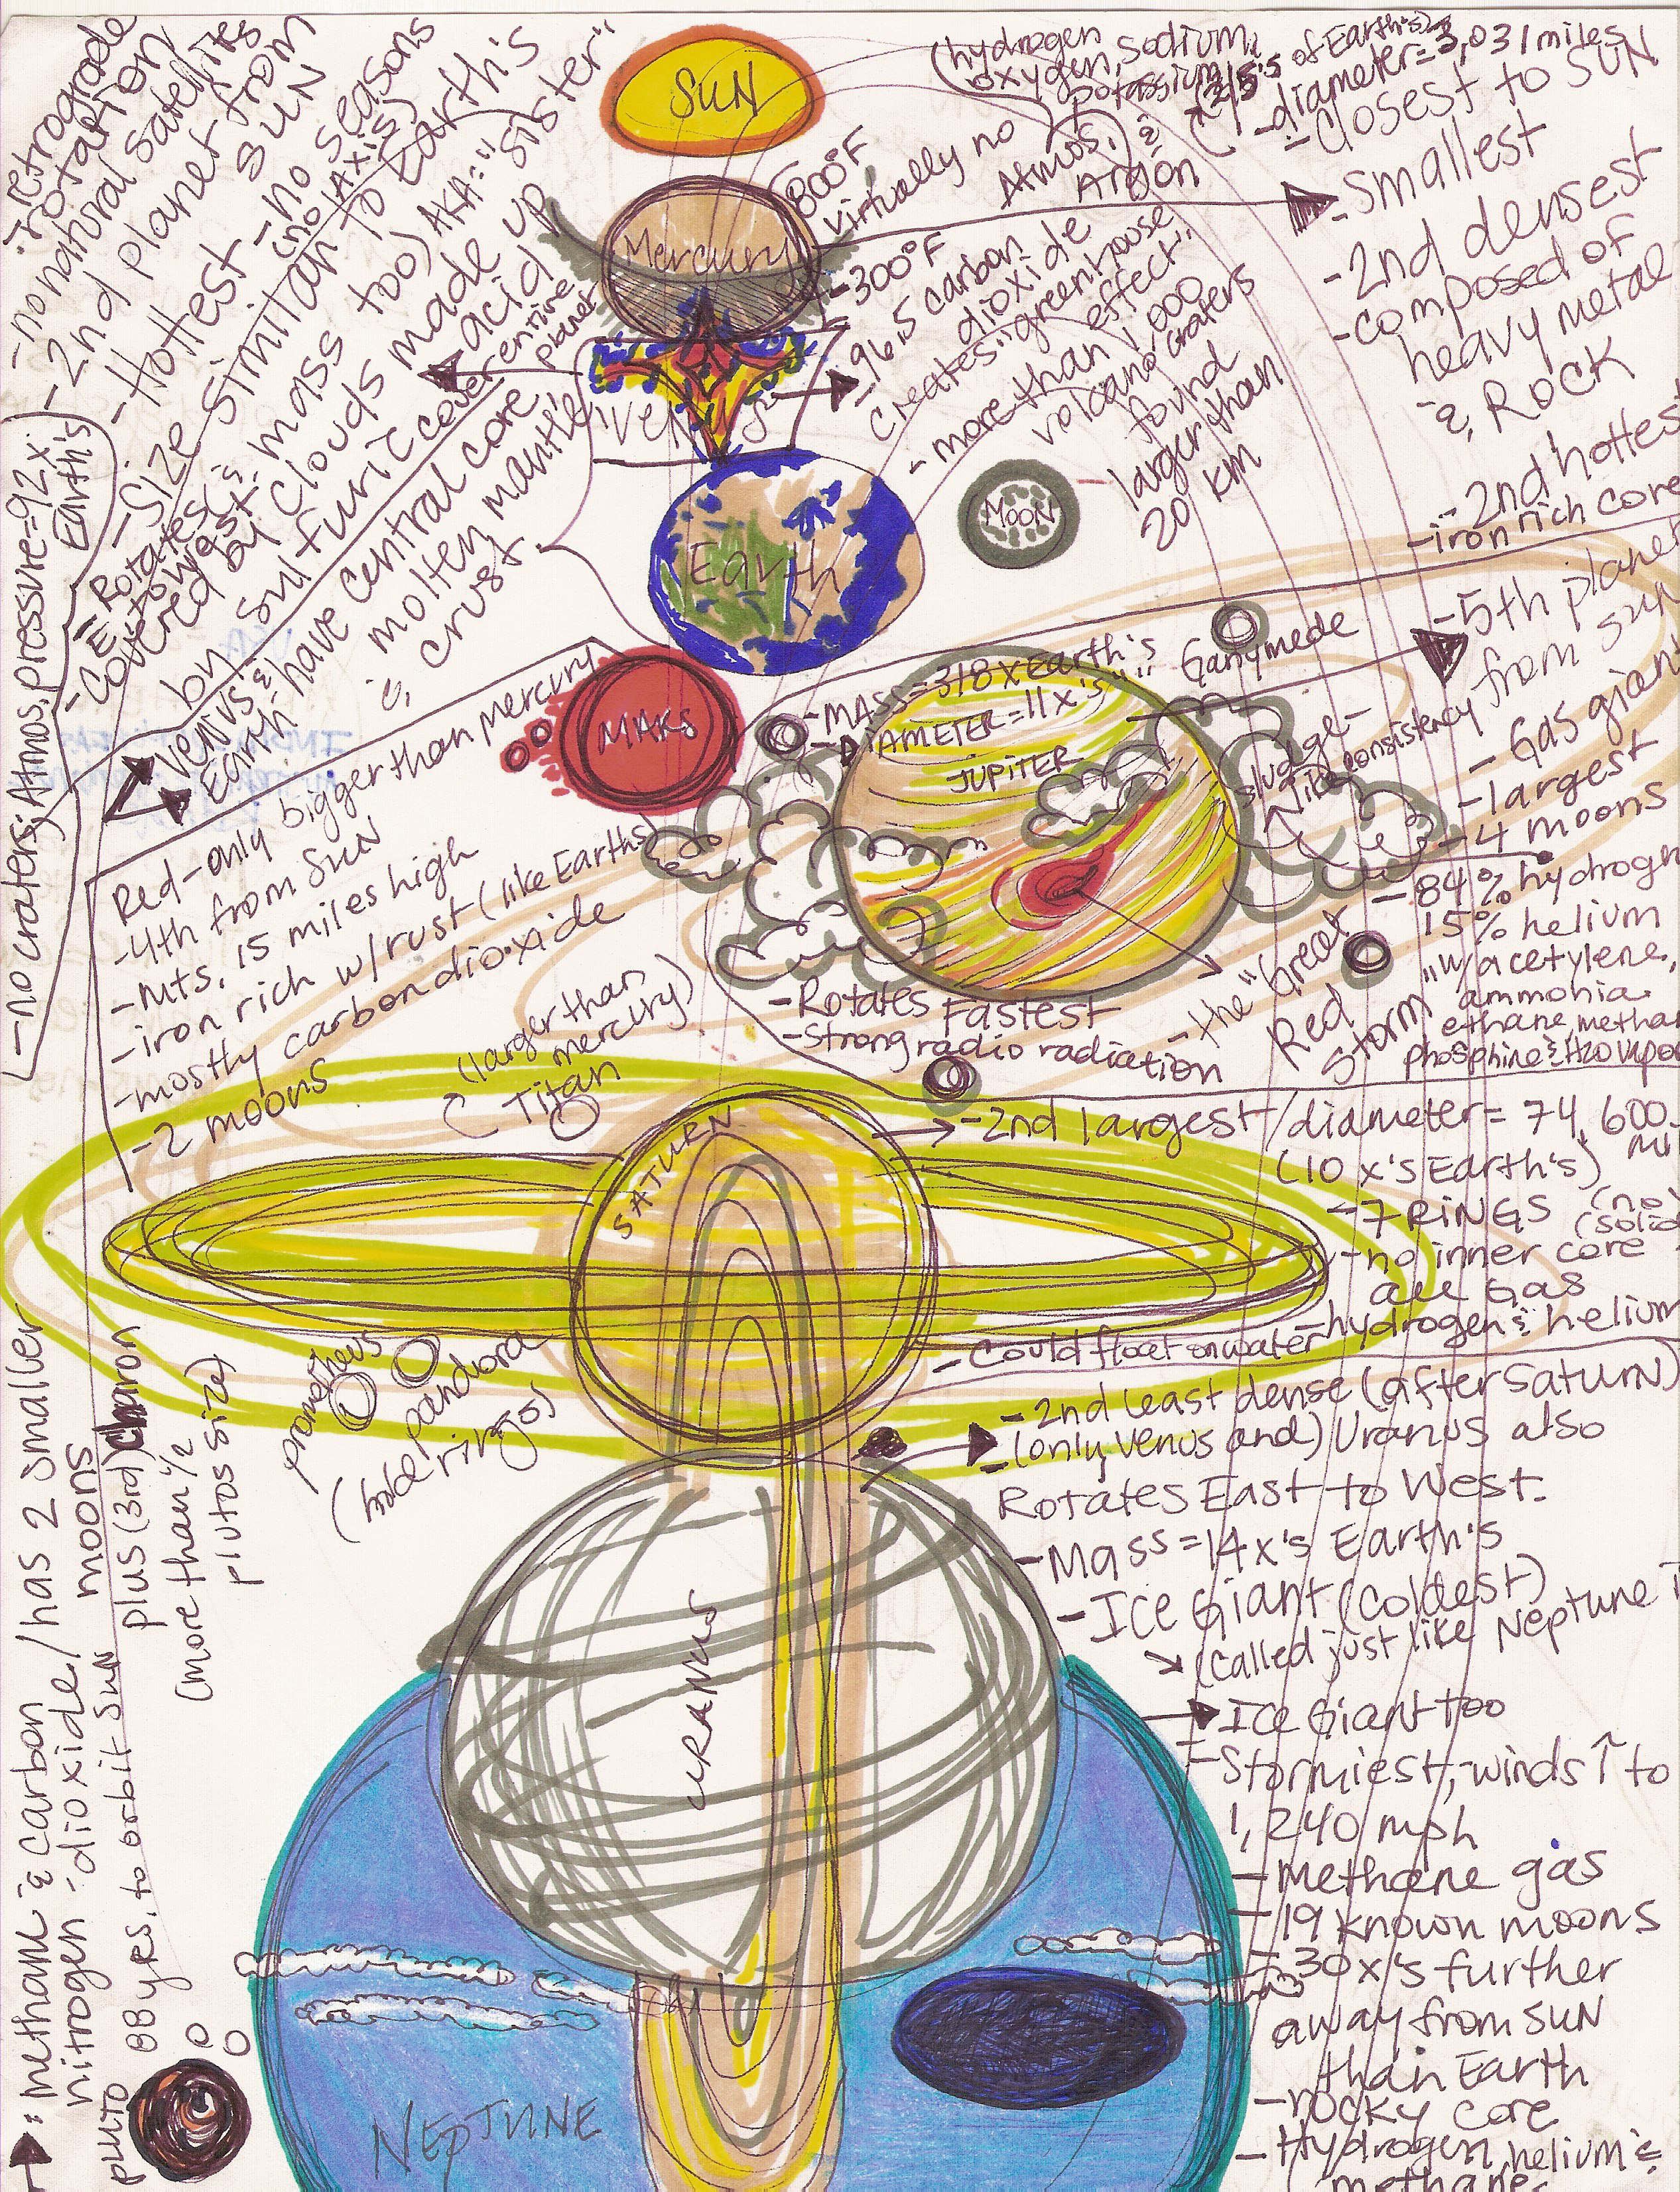 SUN
(hydrogen
oxygen, sodium,
potassium
Argon
Virtually no
Atmos.
800°F
(2/5's of Earth's)
-diameter=3,031 miles
-closest to SUN
-smallest
-2nd densest
-composed of
heavy metal
& ROCK
-2nd hottest
-iron rich core
Mercury
:retrograde
rotation
-no natural satellites
-2nd planet from
SUN
-Hottest -no seasons
(no AXIS)
-Size similar to Earth's
(& mass too) AKA:"sister"
=Rotates
E. to west
-Covered by clouds made up
by sulfuric acid
cover entire
planet
-no craters; Atmos. pressure=92x
Earth's
Venus
-300°F
-96.5 carbon
dioxide
creates "greenhouse
effect"
-more than 1,000
volcano craters
found
larger than
20 km
Venus &
Earth: have central core
molten mantle
& crust.
Earth
MOON
MARS
Red-only bigger than mercury
-4th from SUN
-mts. 15 miles high
-iron rich w/rust (like Earths
-mostly carbon dioxide
-2 moons
-MASS=318 x Earth's
-DIAMETER=11 x's " "
JUPITER
Ganymede
sludge-
like consistency
-5th planet
from SUN
-Gas giant
-largest
-4 moons
-84% hydrogen
15% helium
"w/acetylene,
ammonia
ethane, methan
phosphine & H2O vapor
-Rotates Fastest
-Strong radio radiation
-the "Great
Red
Storm"
(larger than
mercury)
Titan
SATURN
-2nd largest/diameter= 74,600
mi
(10 x's Earth's)
-7 RINGS (no
(solid
-no inner core
all Gas
-hydrogen & helium
-Could float on water
prometheus
pandora
(hold rings)
-2nd least dense (after Saturn)
-(only Venus and) Uranus also
Rotates East to West.
-Mass=14x's Earth's
-Ice Giant (Coldest)
(called just like Neptune
URANUS
Ice Giant too
-Stormiest,-winds ↑ to
1,240 mph
-Methane gas
-19 known moons
-30x's further
away from SUN
than Earth
-rocky core
-Hydrogen, helium &
methane
NEPTUNE
pluto
: methane & carbon
nitrogen -dioxide/has 2 smaller
moons
plus (3rd) Charon
(more than 1/2
plutos size)
88 yrs. to orbit SUN